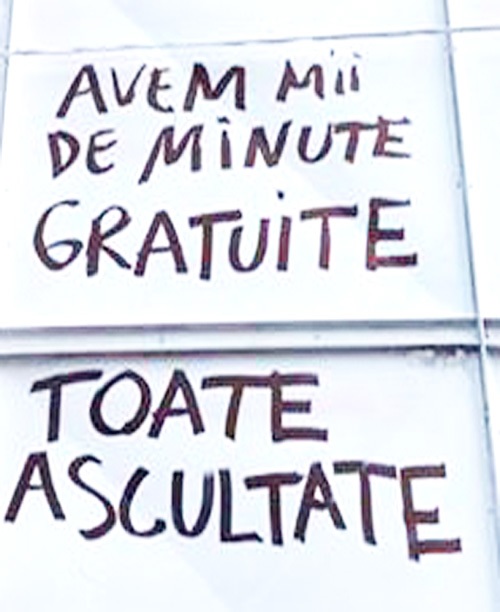 AVEM Mii
DE MiNUTE
GRATUiTE
TOATE
ASCULTATE